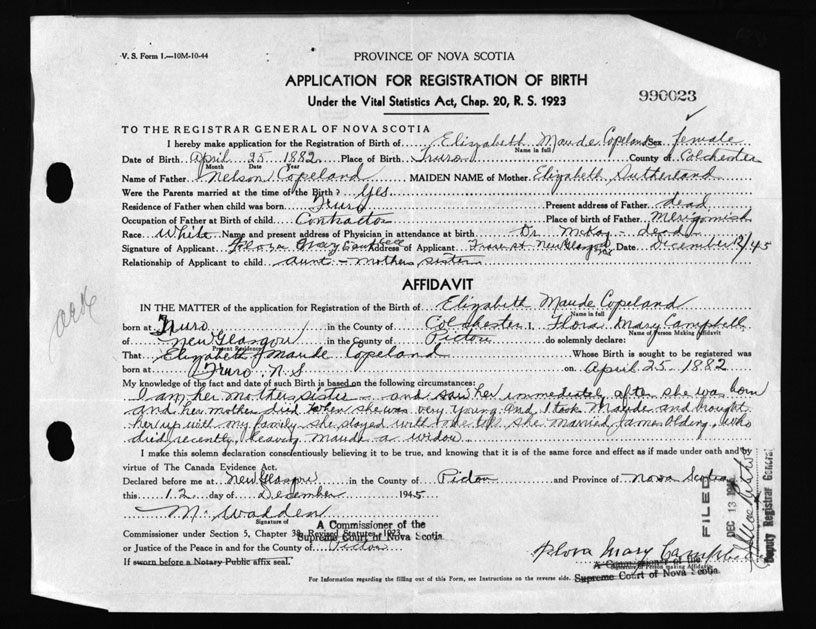 V. S. Form 1.—10M-10-44
PROVINCE OF NOVA SCOTIA
APPLICATION FOR REGISTRATION OF BIRTH
Under the Vital Statistics Act, Chap. 20, R. S. 1923
990023
TO THE REGISTRAR GENERAL OF NOVA SCOTIA
I hereby make application for the Registration of Birth of Elizabeth Maude Copeland Sex female
Name in full
Date of Birth April 25 1882 Place of Birth Truro County of Colchester
Month Date Year
Name of Father Nelson Copeland MAIDEN NAME of Mother Elizabeth Sutherland
Were the Parents married at the time of the Birth? Yes
Residence of Father when child was born Truro Present address of Father dead
Occupation of Father at Birth of child Contractor Place of birth of Father Merigomish
Race White Name and present address of Physician in attendance at birth Dr. McKay - dead
Signature of Applicant Flora Mary Campbell Address of Applicant Fraser st New Glasgow NS Date December 12/45
Relationship of Applicant to child aunt - mothers sister
AFFIDAVIT
IN THE MATTER of the application for Registration of the Birth of Elizabeth Maude Copeland
Name in full
born at Truro in the County of Colchester I, Flora Mary Campbell
Name of Person Making Affidavit
of New Glasgow in the County of Pictou do solemnly declare:
Present Residence
That Elizabeth Maude Copeland Whose Birth is sought to be registered was
born at Truro N.S on April 25. 1882
My knowledge of the fact and date of such Birth is based on the following circumstances:
I am her mothers sister - and saw her immediately after she was born
and her mother died when she was very young and I took Maude and brought
her up with my family she stayed with me till she married James Olding, who
died recently, leaving Maude a widow
I make this solemn declaration conscientiously believing it to be true, and knowing that it is of the same force and effect as if made under oath and by
virtue of The Canada Evidence Act.
Declared before me at New Glasgow in the County of Pictou and Province of Nova Scotia
this 12 day of December 1945
Signature of
A Commissioner of the
Supreme Court of Nova Scotia
Commissioner under Section 5, Chapter 38, Revised Statutes, 1923
or Justice of the Peace in and for the County of Pictou
If sworn before a Notary Public affix seal.
Flora Mary Campbell
Signature of Person making Affidavit
A Commissioner of the
Supreme Court of Nova Scotia
For Information regarding the filling out of this Form, see Instructions on the reverse side.
FILED
DEC 13 1945
Deputy Registrar General